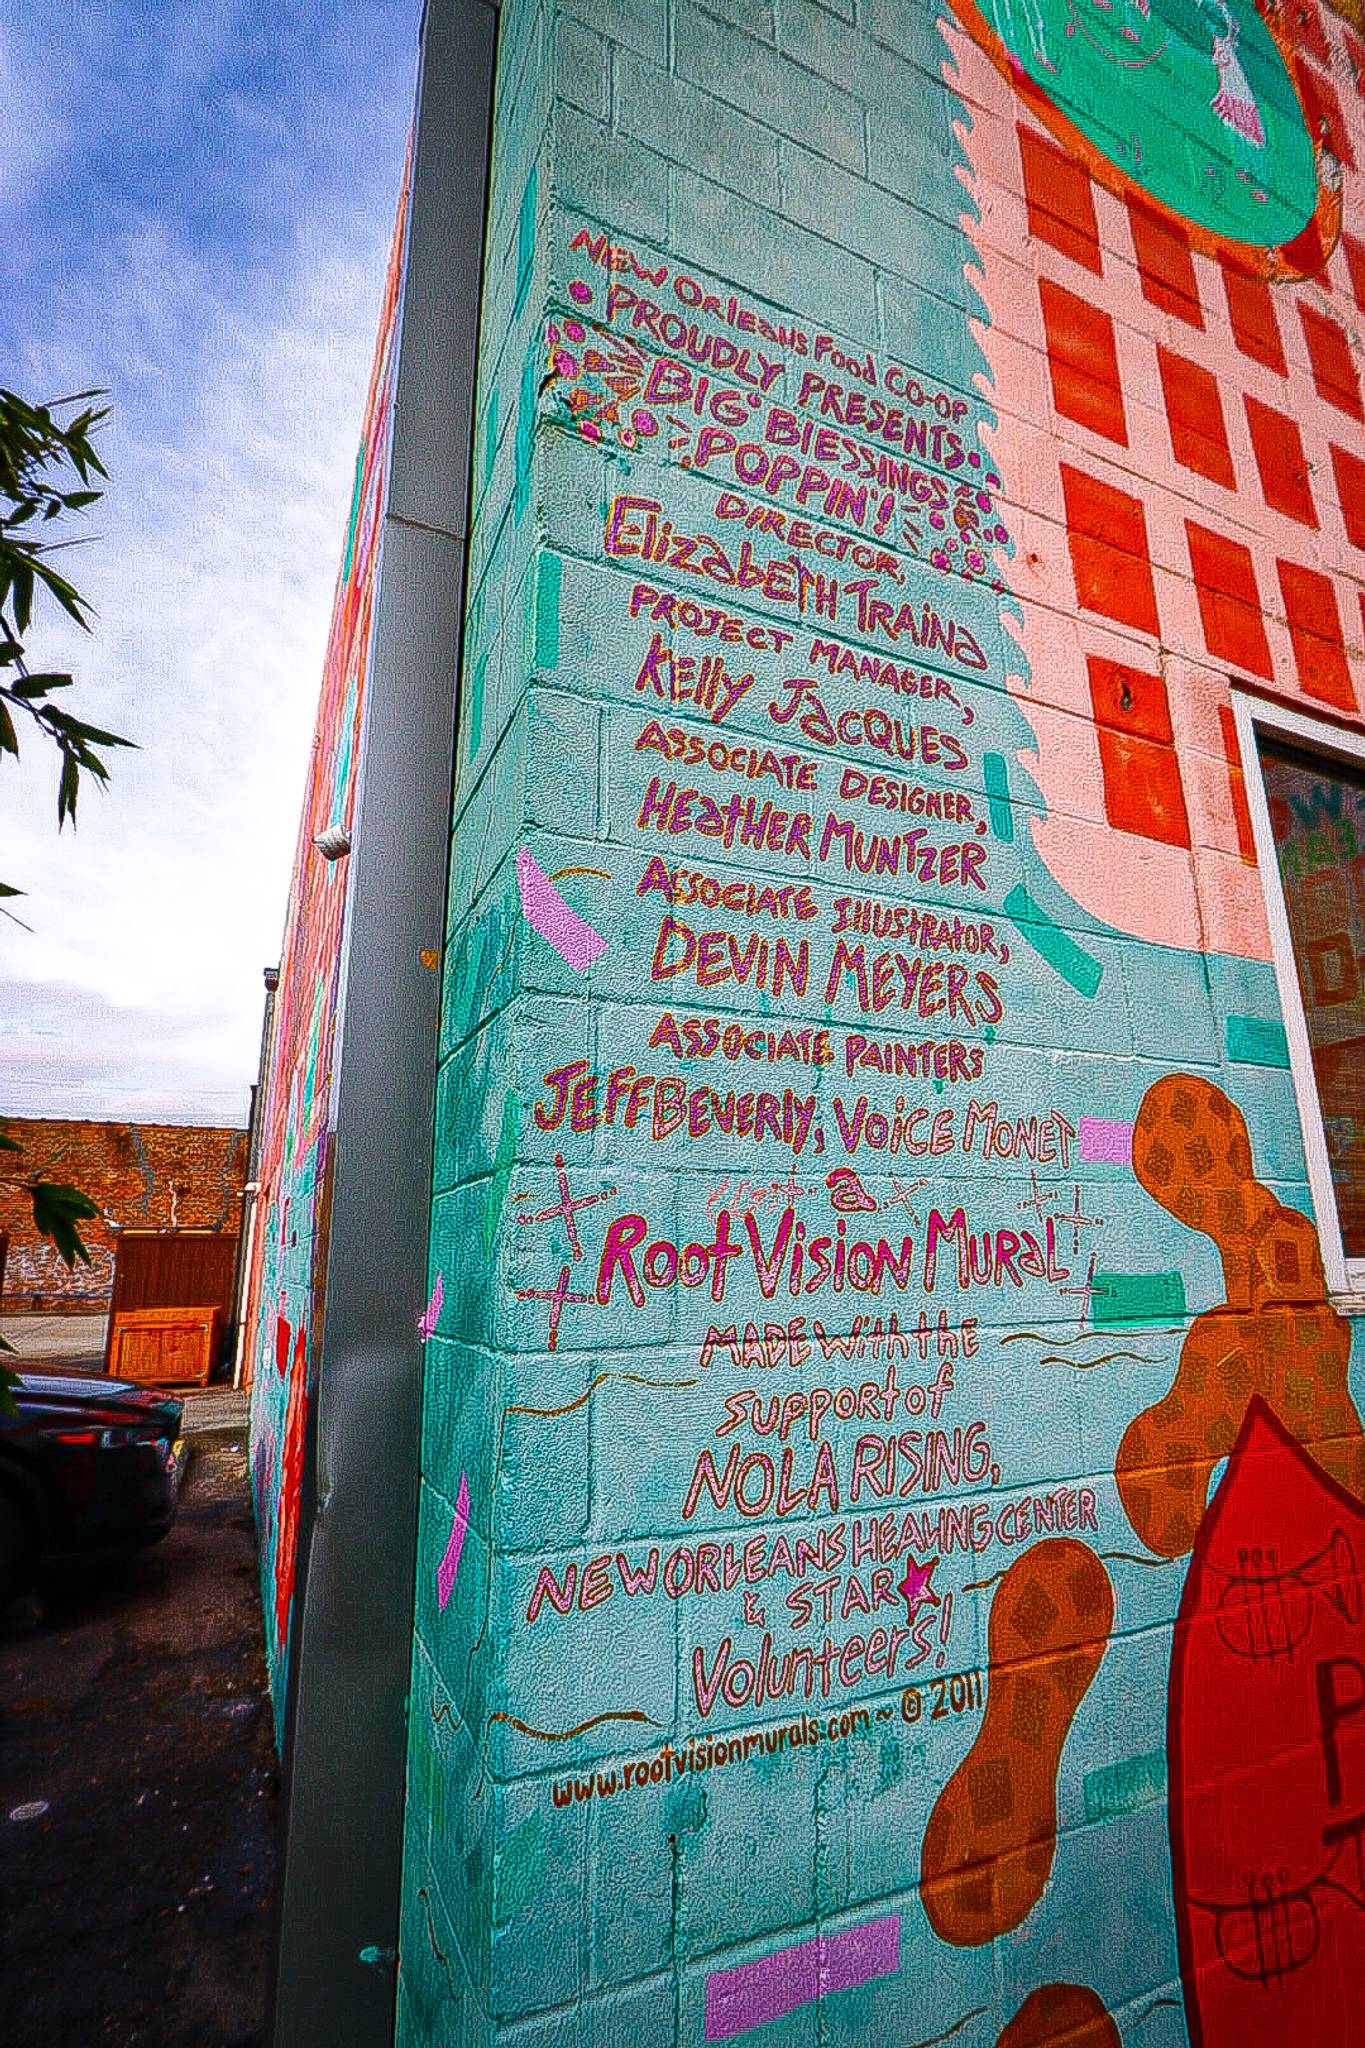 NEW ORLEANS FOOD CO-OP
PROUDLY PRESENTS
BIG BLESSINGS
POPPIN'!
DIRECTOR,
ELIZABETH TRAINA
PROJECT MANAGER,
KELLY JACQUES
ASSOCIATE DESIGNER,
HEATHER MUNTZER
ASSOCIATE ILLUSTRATOR,
DEVIN MEYERS
ASSOCIATE PAINTERS
JEFF BEVERLY, VOICE MONET
a
Root Vision Mural
MADE with the
support of
NOLA RISING,
NEW ORLEANS HEALING CENTER
& STAR
Volunteers!
www.rootvisionmurals.com ~ © 2011